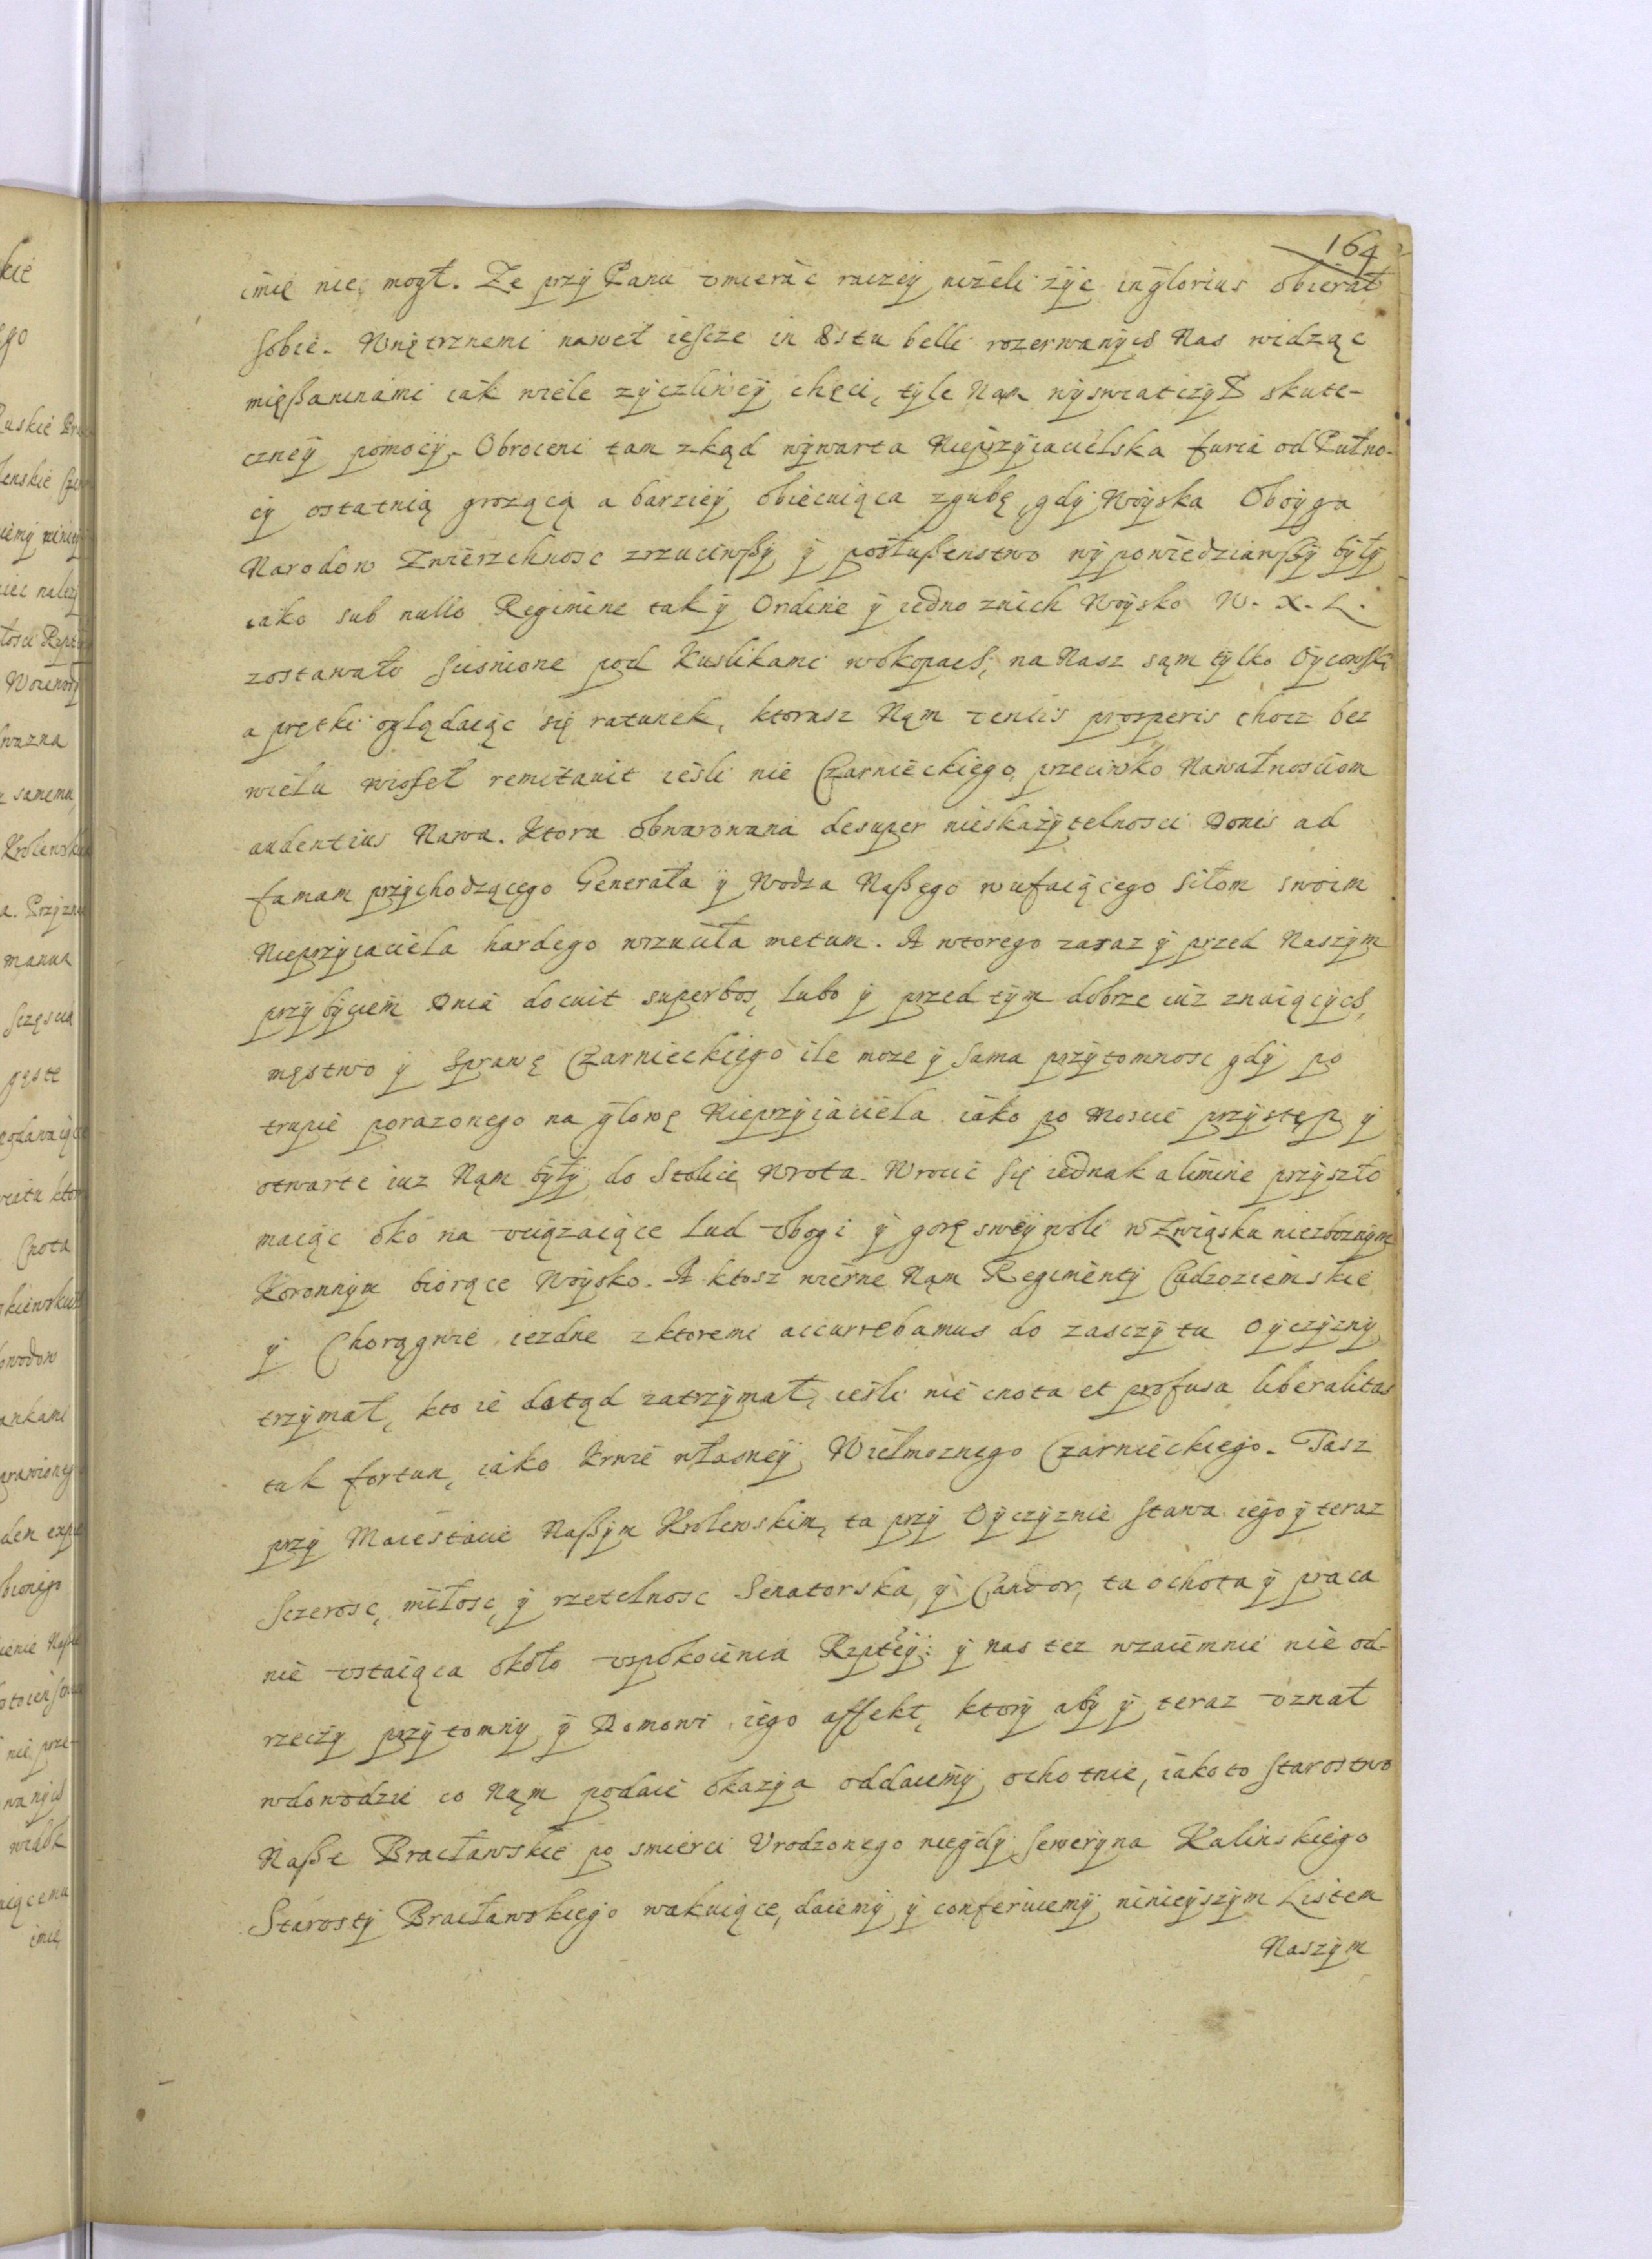 164
imię nie mogł. Ze przy Panu vmierac raczey nizeli zyc inglorius obierał
sobie. Wnętrznemi nawet iescze in æstu belli rozerwanych Nas widząc
mięßaninami iak wiele zyczliwey chęci, tyle Nam wyswiatczył skute-
czney pomocy. Obroceni tam zkąd wywarta Nieprzyiacielska furia od Pułno-
cy ostatnią grozącą a barziey obiecuiąca zgubę, gdy Woyska Oboyga
Narodow Zwierzchnosc zrzuciwßy y posłußenstwo wypowiedziawßy były
iako sub nullo Regimine tak y Ordine y iedno znich Woysko W. X. L.
zostawało scisnione pod Kuslikami wokopach, na Nasz sąm tylko Oycowski
a prętki oglądaiąc się ratunek, ktorusz Nąm ventis prosperis chocz bez
wielu wioseł remitauit ieśli nie Czarnieckiego przeciwko Nawałnosciom
audentius Nawa. Ktora obwarowana desuper nieskazytelnosci Donis ad
famam przychodzącego Generała y Wodza Naßego wufaiącego siłom swoim
Nieprzyiaciela hardego wrzuciła metum. A wtorego zaraz y przed Naszym
przybyciem Dnia docuit superbos, lubo y przed tym dobrze iuz znaiących,
męstwo y Sprawę Czarnieckiego ile moze y sama przytomnosc gdy po
trupie porazonego na głowę Nieprzyiaciela iako po Moscie przystęp y
otwarte iuz Nąm były do Stolice Wrota. Wrocic się iednak a limine przyszło
maiąc oko na vciązaiące lud vbogi y gorę swey woli w Związku niezboznym
Koronnym biorące Woysko. A ktosz wierne Nąm Regimenty Cudzoziemskie
y Chorągwie iezdne zktoremi accurrebamus do zasczytu Oyczyzny
trzymał, kto ie dotąd zatrzymał, ieśli nie cnota et profusa liberalitas
tak fortun, iako krwie własney Wielmoznego Czarnieckiego. Tasz
przy Maiestacie Naßym Krolewskim, ta przy Oyczyznie stawa iego y teraz
sczerosc, miłosc, y rzetelnosc Senatorska, y Candor, ta ochota y praca
nie vstaiąca około vspokoienia Rzptey: y nas tez wzaiemnie nie od-
rzeczy przytomny y Domowi iego affekt, ktory aby y teraz vznał
wdowodzie co Nąm podaie okazya oddaiemy ochotnie, iako to Starostwo
Naßę Bracławskie po smierci Vrodzonego niegdy Seweryna Kalinskiego
Starosty Bracławskiego wakuiące, daiemy y conferuiemy ninieyszym Listem
Naszym